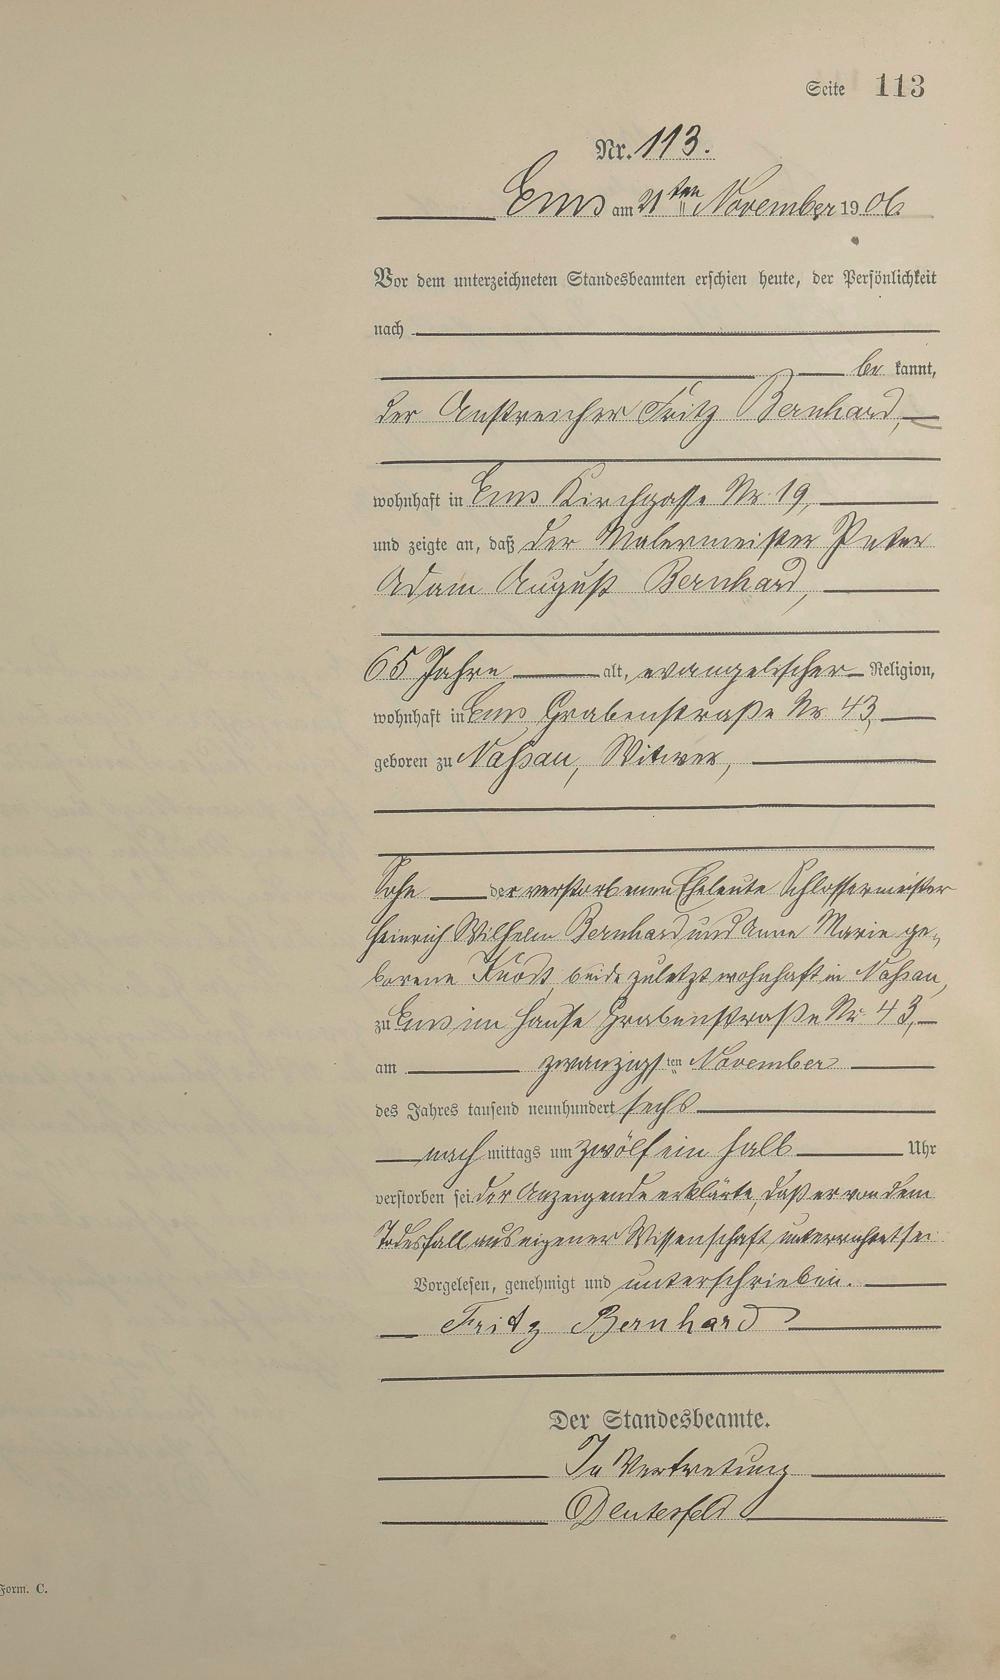 Seite 113
Nr. 113.
Ems am 21ten November 1906.
Vor dem unterzeichneten Standesbeamten erschien heute, der Persönlichkeit
nach
be kannt,
der Anstreicher Fritz Bernhard,
wohnhaft in Ems Kirchgasse Nr. 19,
und zeigte an, daß der Malermeister Peter
Adam August Bernhard,
65 Jahre alt, evangelischer Religion,
wohnhaft in Ems Grabenstraße Nr. 43,
geboren zu Nassau, Witwer,
Sohn der verstorbenen Eheleute Schlossermeister
Heinrich Wilhelm Bernhard und Anna Marie ge-
borene beide zuletzt wohnhaft in Nassau,
zu Ems im Hause Grabenstraße Nr. 43,
am zwanzigsten November
des Jahres tausend neunhundert sechs
nach mittags um zwölf ein halb Uhr
verstorben sei. der Anzeigende erklärte, daß er von dem
Todesfall aus eigener Wissenschaft unterrichtet sei
Vorgelesen, genehmigt und unterschrieben.
Fritz Bernhard
Der Standesbeamte.
In Vertretung
Form. C.